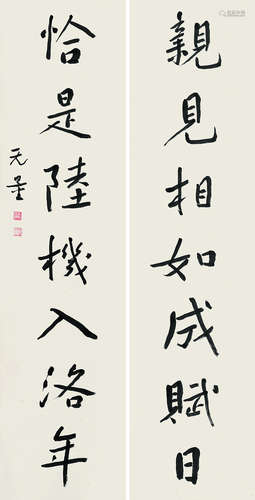 親見相如成賦日
恰是陸機入洛年
无量